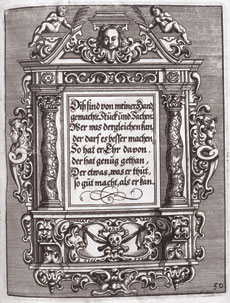 Diß sind von meiner Hand
gemachte Stück und Sachen.
Wer was dergleichen kan,
der darf es besser machen.
So hat er Ehr davon.
der hat genúg gethan,
Der etwas, was er thút,
so gút macht, als er kan.
50